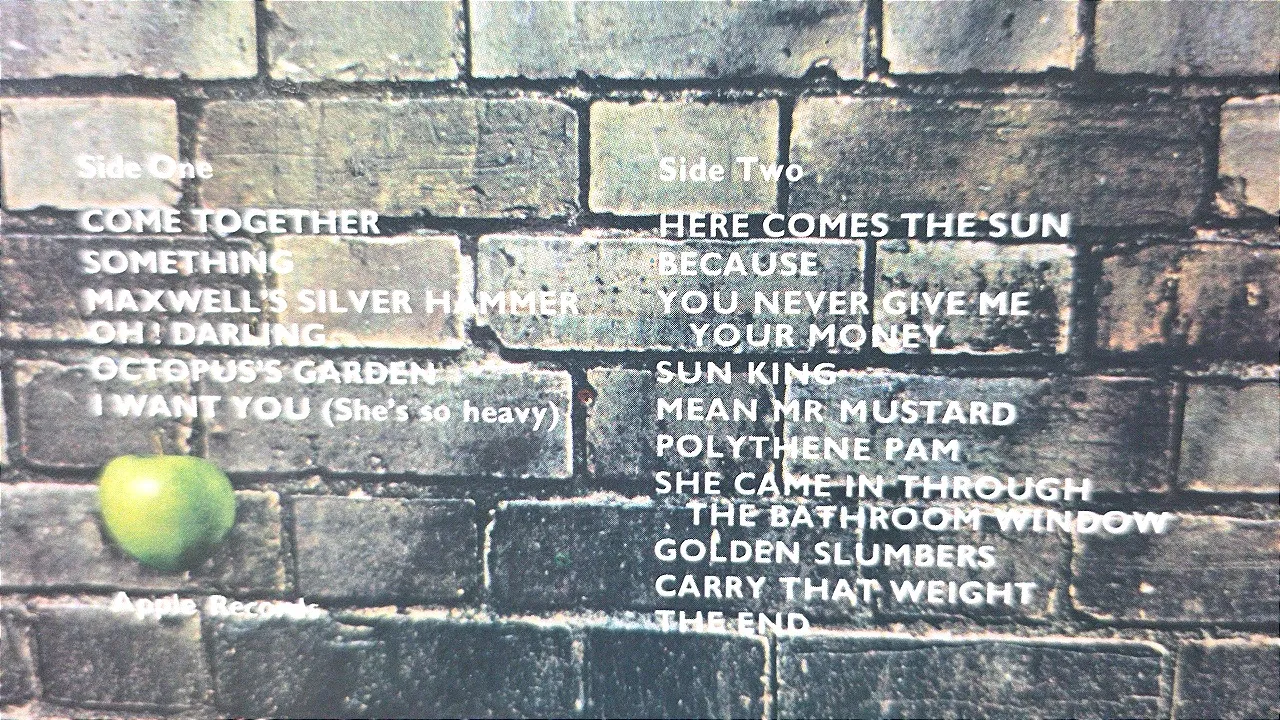 Side One
COME TOGETHER
SOMETHING
MAXWELL'S SILVER HAMMER
OH! DARLING
OCTOPUS'S GARDEN
I WANT YOU (She's so heavy)
Apple Records
Side Two
HERE COMES THE SUN
BECAUSE
YOU NEVER GIVE ME
YOUR MONEY
SUN KING
MEAN MR MUSTARD
POLYTHENE PAM
SHE CAME IN THROUGH
THE BATHROOM WINDOW
GOLDEN SLUMBERS
CARRY THAT WEIGHT
THE END